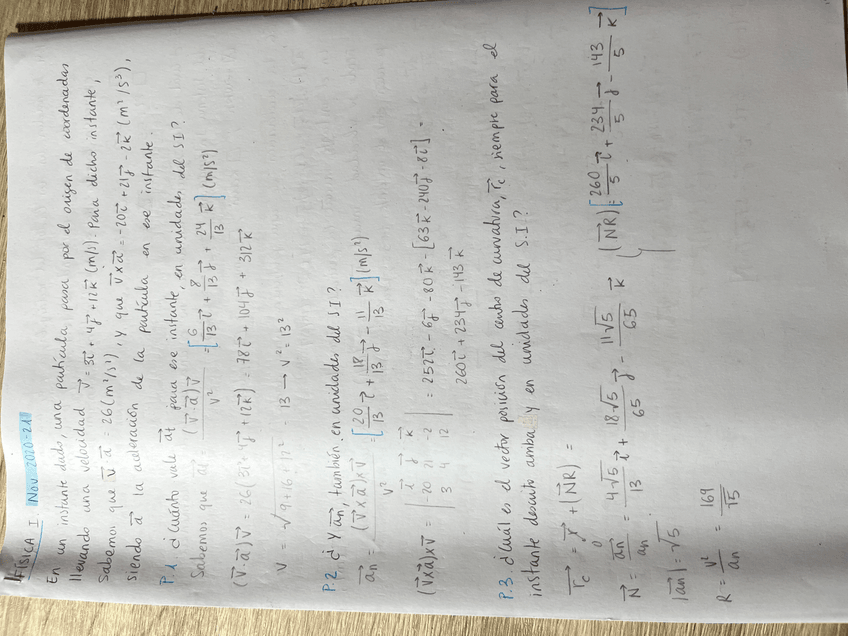 FÍSICA I Nov. 2020-21
En un instante dado, una partícula pasa por el origen de coordenadas
llevando una velocidad v⃗ = 3i⃗ + 4j⃗ + 12k⃗ (m/s). Para dicho instante,
Sabemos que v⃗ · a⃗ = 26 (m²/s³), y que v⃗ x a⃗ = -20i⃗ + 21j⃗ - 2k⃗ (m²/s³),
siendo a⃗ la aceleración de la partícula en ese instante.
P.1 ¿Cuánto vale a⃗t para ese instante, en unidades del SI?
Sabemos que a⃗t = (v⃗ · a⃗)v⃗ / v² = [6/13 i⃗ + 8/13 j⃗ + 24/13 k⃗] (m/s²)
(v⃗ · a⃗)v⃗ = 26(3i⃗ + 4j⃗ + 12k⃗) = 78i⃗ + 104j⃗ + 312k⃗
v = √9+16+12² = 13 → v² = 13²
P.2 ¿Y a⃗n, también en unidades del SI?
a⃗n = (v⃗ x a⃗) x v⃗ / v² = [20/13 i⃗ + 18/13 j⃗ - 11/13 k⃗] (m/s²)
(v⃗ x a⃗) x v⃗ = | i⃗ j⃗ k⃗ | -20 21 -2 | 3 4 12 | = 252i⃗ - 6j⃗ - 80k⃗ - [63k⃗ - 240j⃗ - 8i⃗] =
260i⃗ + 234j⃗ - 143k⃗
P.3 ¿Cuál es el vector posición del centro de curvatura, r⃗c, siempre para el
instante descrito arriba y en unidades del S.I?
r⃗c = r⃗ + (N⃗R) =
0
N⃗ = a⃗n / an = 4√5/13 i⃗ + 18√5/65 j⃗ - 11√5/65 k⃗ (N⃗R) = [260/5 i⃗ + 234/5 j⃗ - 143/5 k⃗]
|a⃗n| = √5
R = v²/an = 169/√5